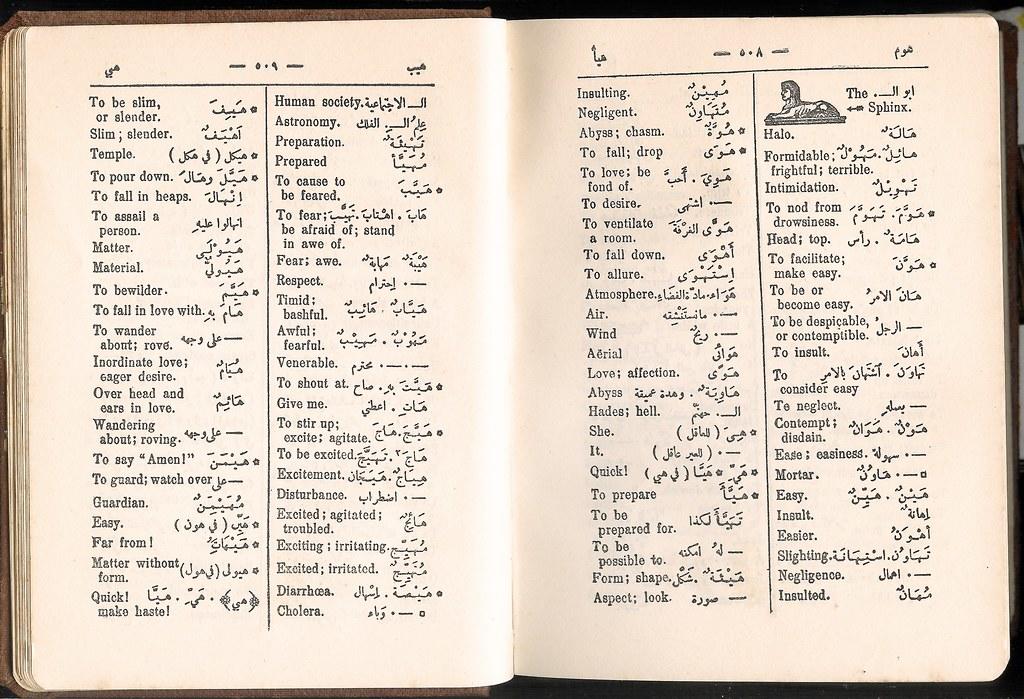 هيأ — ٥٠٨ — هوم
The ابو الـ...
Sphinx.
Halo. هَالَة
Formidable; هائِلٌ. مَهُوْلٌ
frightful; terrible.
Intimidation. تَهْوِيْلٌ
To nod from هَوَّمَ. تَهَوَّمَ *
drowsiness.
Head; top. هَامَةٌ . رأس
To facilitate; هَوَّنَ *
make easy.
To be or هَانَ الامرُ
become easy.
To be despicable, — الرجلُ
or contemptible.
To insult. أَهَانَ
To تَهَاوَنَ . اسْتَهَانَ بالامرِ
consider easy
To neglect. — بعملهِ
Contempt; هَوْنٌ. هَوَانٌ
disdain.
Ease; easiness. —. سهولة
Mortar. —. هَاوُنٌ
Easy. هَيْنٌ . هَيِّنٌ
Insult. إِهَانَةٌ
Easier. أَهْوَنُ
Slighting. تَهَاوُن. اسْتِهَانَة
Negligence. —. اهمال
Insulted. مُهَانٌ
Insulting. مُهِيْنٌ
Negligent. مُتَهَاوِنٌ
Abyss; chasm. هُوَّةٌ *
To fall; drop هَوَى *
To love; be هَوِيَ . أَحبَّ
fond of.
To desire. —. اشتهى
To ventilate هَوَّى الغرْفَةَ
a room.
To fall down. أَهْوَى
To allure. إِسْتَهْوَى
Atmosphere. هَوَاء. مادّةالفضَاء
Air. —. مانستَنْشِقه
Wind —. ريحٌ
Aërial هَوَائِي
Love; affection. هَوًى
Abyss هَاوِيَةٌ . وهدة عميقة
Hades; hell. الـ... جهنّم
She. هِيَ (للعاقل) *
It. —. (للغير عاقل)
Quick! هَيَّ * هَيَّا (في هيي) *
To prepare هَيَّأَ *
To be تَهَيَّأَ لكذا
prepared for.
To be — لهُ امكنه
possible to.
Form; shape. هَيْئَةٌ . شَكْل
Aspect; look. — صورة
هيي — ٥٠٩ — هيب
Human society. الـ الاجتماعية
Astronomy. عِلمُ الـ... الفلك
Preparation. تَهْيِئَةٌ
Prepared مُهَيَّأٌ
To cause to هَيَّبَ *
be feared.
To fear; هَابَ . اهْتَابَ. تَهَيَّبَ
be afraid of; stand
in awe of.
Fear; awe. هَيْبَةٌ مَهابةٌ
Respect. —. إحترام
Timid; هَيَّابٌ . هَائِبٌ
bashful.
Awful; مَهُوْبٌ . مَهِيْبٌ
fearful.
Venerable. —.— محترم
To shout at. هَيَّتَ بهِ. صاح *
Give me. هَاتِ. اعطني
To stir up; هَيَّجَ. هَاجَ *
excite; agitate.
To be excited. هَاجَ٢. تَهَيَّجَ
Excitement. هِيَاجٌ. هَيَجَان
Disturbance. —. اضطراب
Excited; agitated; هَائِجٌ
troubled.
Exciting; irritating. مُهَيِّجٌ
Excited; irritated. مُهَيَّجٌ
Diarrhœa. هَيْضَة . إِسْهال *
Cholera. —. وَباء
To be slim, هَيِفَ *
or slender.
Slim; slender. أَهْيَفُ
Temple. هيكل (في هكل) *
To pour down. هَيَّلَ وهَالَ *
To fall in heaps. إِنْهَالَ
To assail a انهالوا عليهِ
person.
Matter. هَيُوْلَى
Material. هَيُولِيٌّ
To bewilder. هَيَّمَ *
To fall in love with. هَامَ بهِ
To wander — على وجههِ
about; rove.
Inordinate love; هُيَامٌ
eager desire.
Over head and هَائِمٌ
ears in love.
Wandering — على وجههِ
about; roving.
To say "Amen!" هَيْمَنَ *
To guard; watch over — على
Guardian. مُهَيْمِنٌ
Easy. هَيِّن (في هون) *
Far from! هَيْهَاتَ *
Matter without هيولى (في هول) *
form.
Quick! ﴿هيي﴾ . هَيَّ . هَيَّا
make haste!